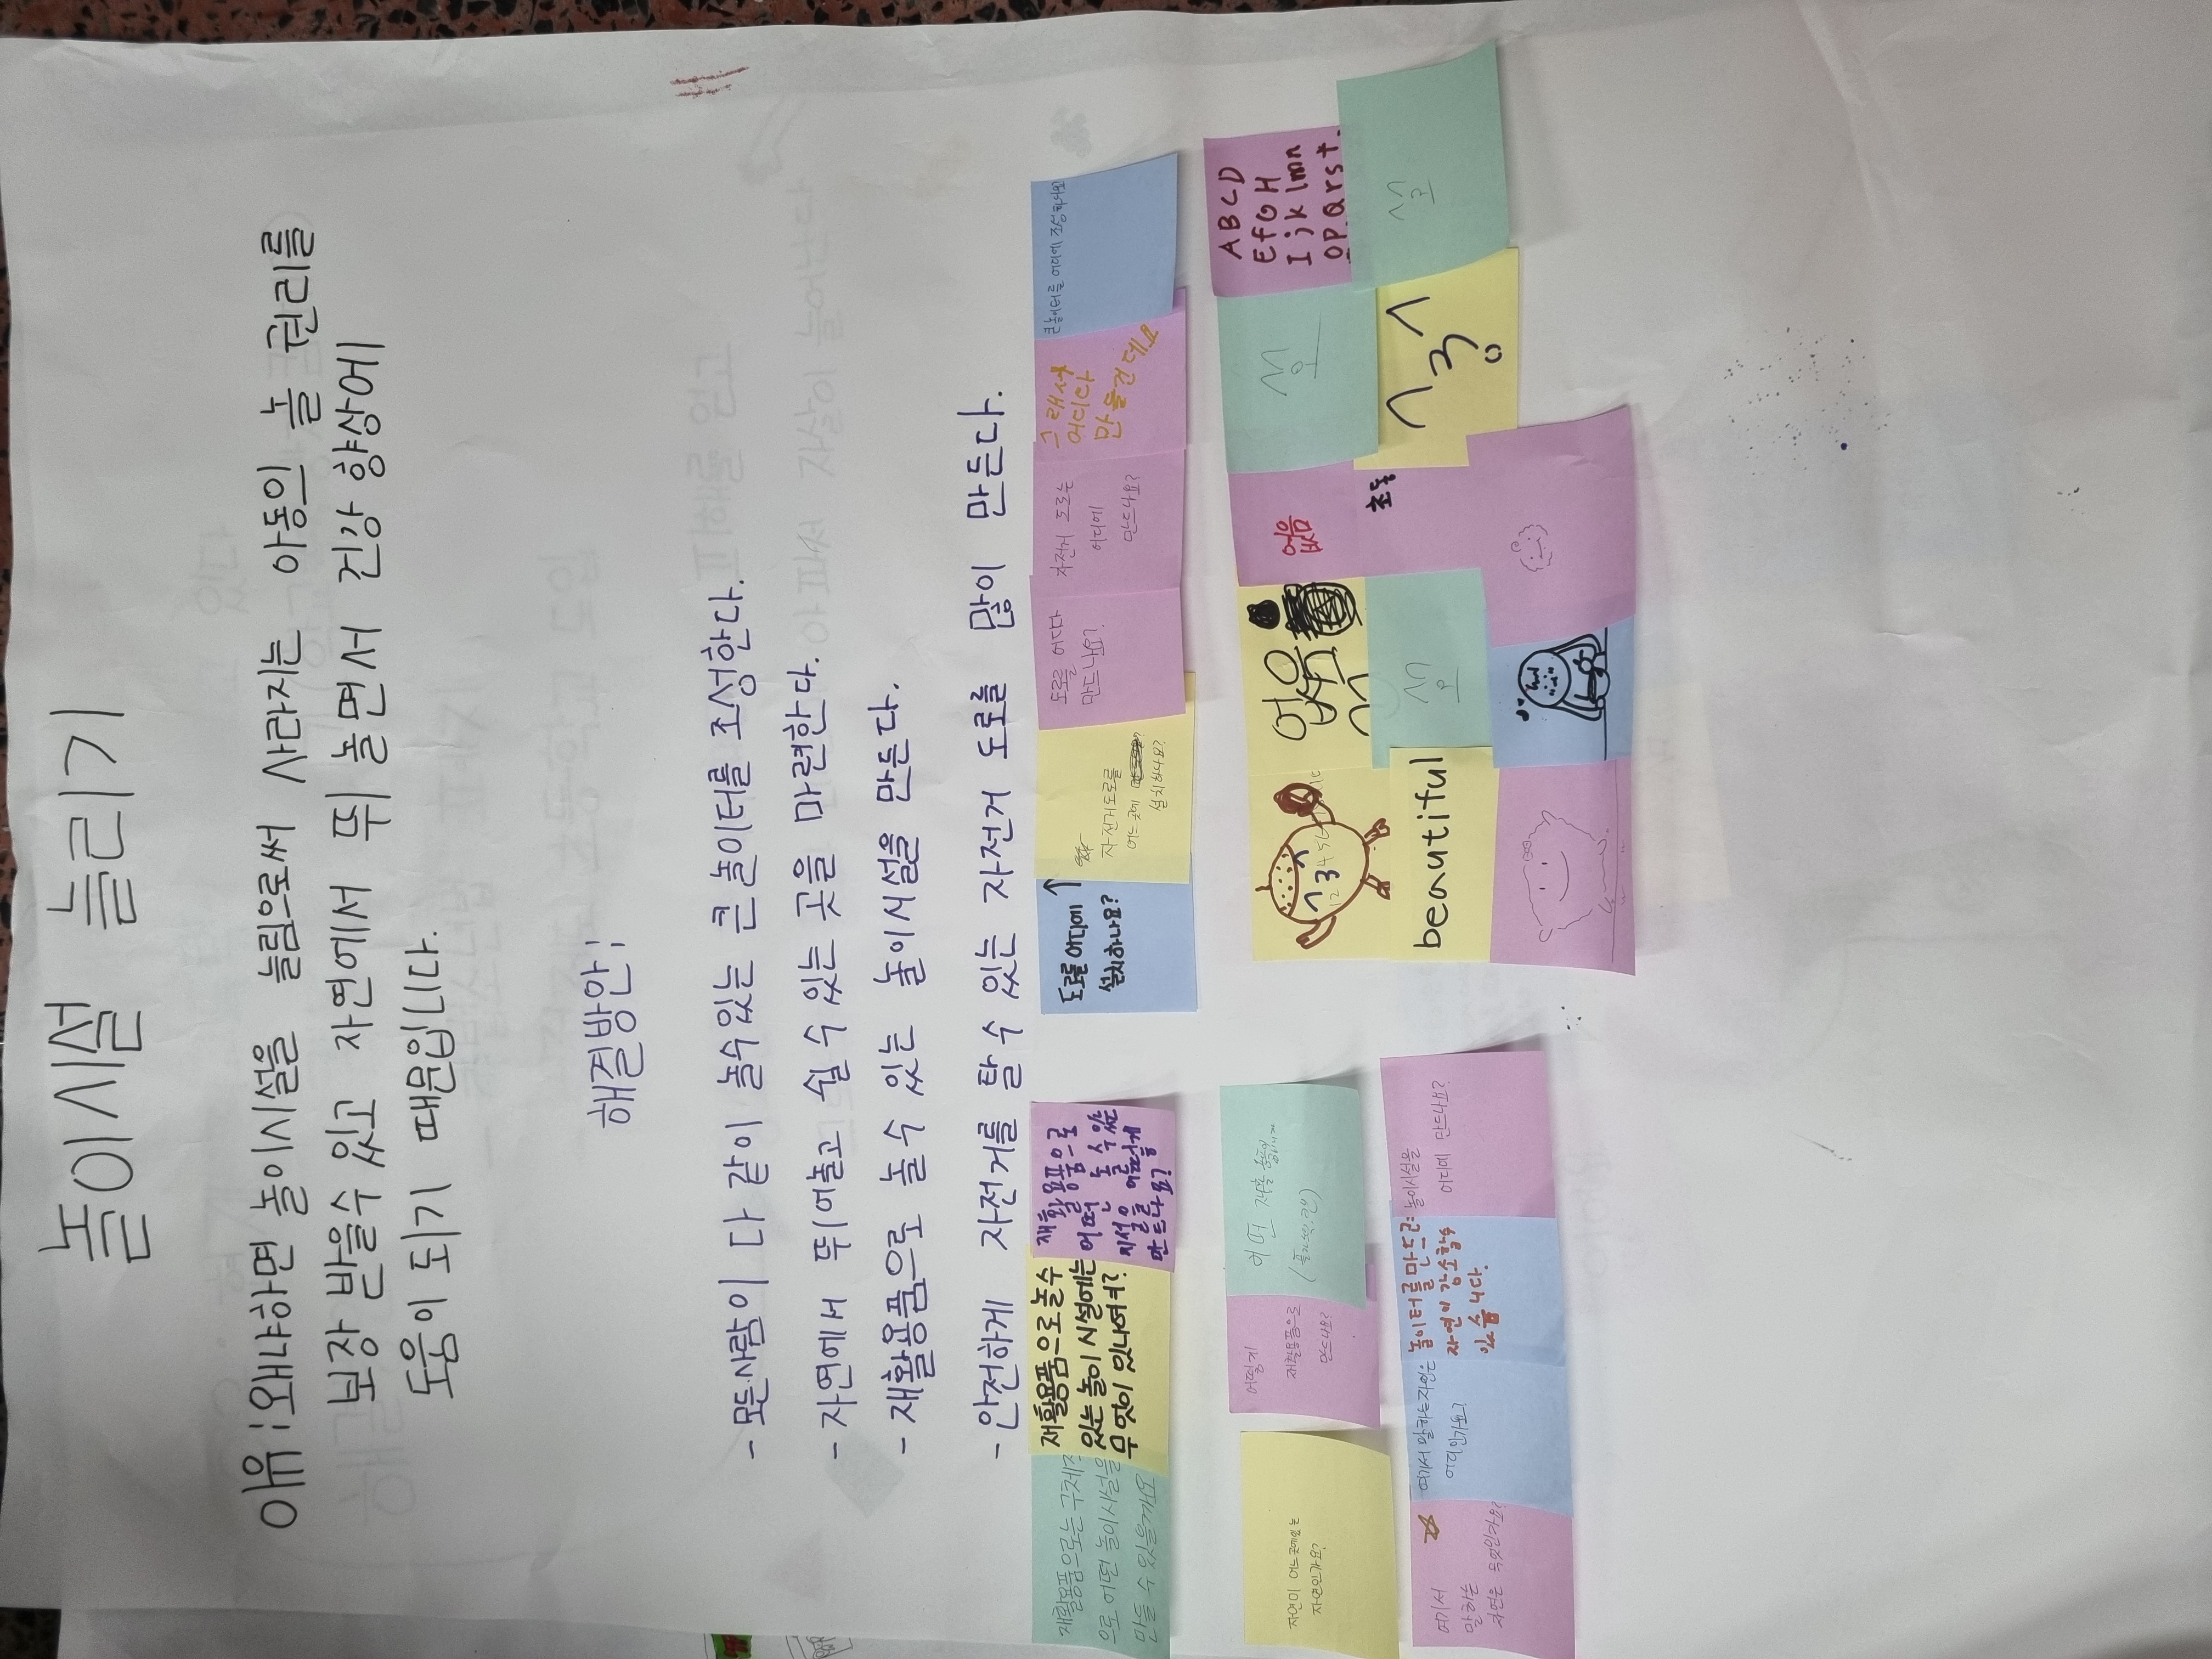 놀이시설 늘리기
이유 : 왜냐하면 놀이시설을 늘림으로써 사라지는 아동의 놀 권리를
보장 받을수 있고 자연에서 뛰 놀면서 건강 향상에
도움이 되기 때문입니다.
해결방안 :
- 모든사람이 다 같이 놀수있는 큰놀이터를 조성한다.
- 자연에서 뛰어놀고 쉴 수 있는 곳을 마련한다.
- 재활용품으로 놀 수 있는 놀이시설을 만든다.
- 안전하게 자전거를 탈 수 있는 자전거 도로를 많이 만든다.
재활용품으로는 구체적
으로 어떤 놀이시설을
만들 수 있을까요
재활용품으로놀수
있는놀이시설에는
무엇이 있나여?
재활용품으로
어떤 놀 수 있는
시설을 어떻게
만드나요?
도로를 어디에
설치하나요?
자전거도로를
어느곳에
설치하나요?
도로를 어디다
만드나요?
자전거 도로는
어디에
만드나요?
그래서
어디다
만들건데
큰놀이터를 어디에 조성하나요
자연이 어느곳에있는
자연인가요?
어떻게
재활용품으로
만드나요?
어떤 재활용품
여기서
말하는
자연은 무엇인가요?
여기서 말하는자연은
어디인가요?
놀이터를만드는
자연이 감소할수
있습니다.
놀이시설을
어디에 만드나요?
1 2 3 4 5
없음
없음
초등
ABCD
EfGH
Ijklmn
OPQrst
beautiful